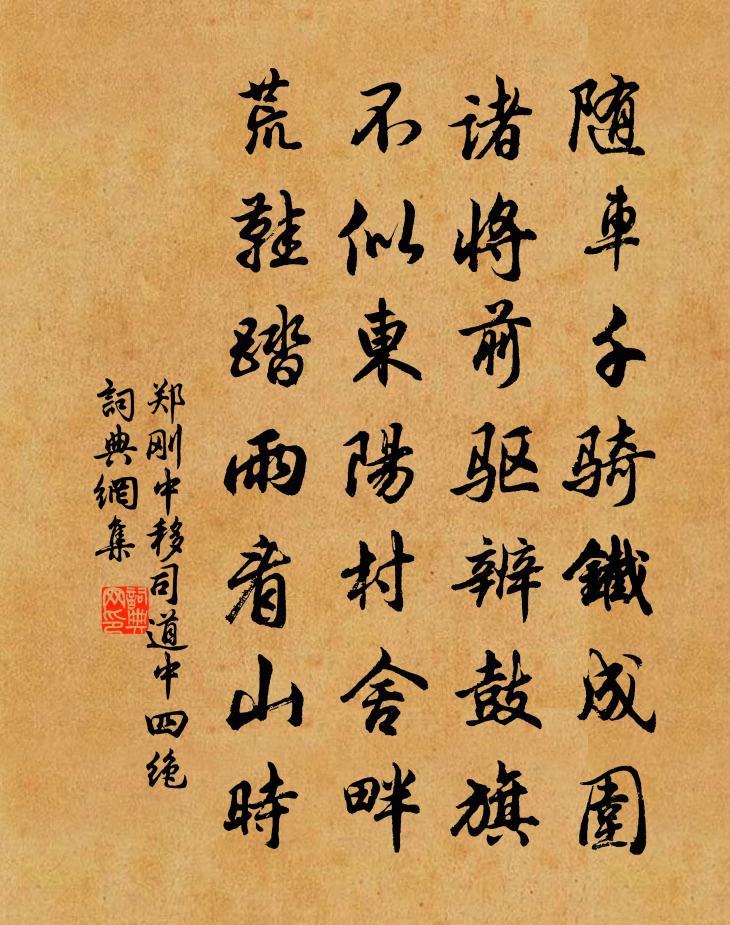 随車千骑鐵成圍
诸将前驱辨鼓旗
不似東陽村舍畔
荒鞋踏雨看山時
郑刚中移司道中四绝
詞典網集
詞典网印